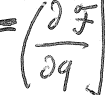 = (∂F/∂q)